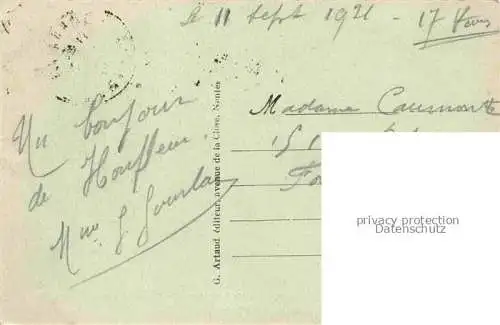 Le 11 Sept 1921 - 17 heures
Un bonjour
de Honfleur.
Mme G Gourlan
G. Artaud éditeur, avenue de la Close, Nantes
Madame Caumont
15
privacy protection
Datenschutz